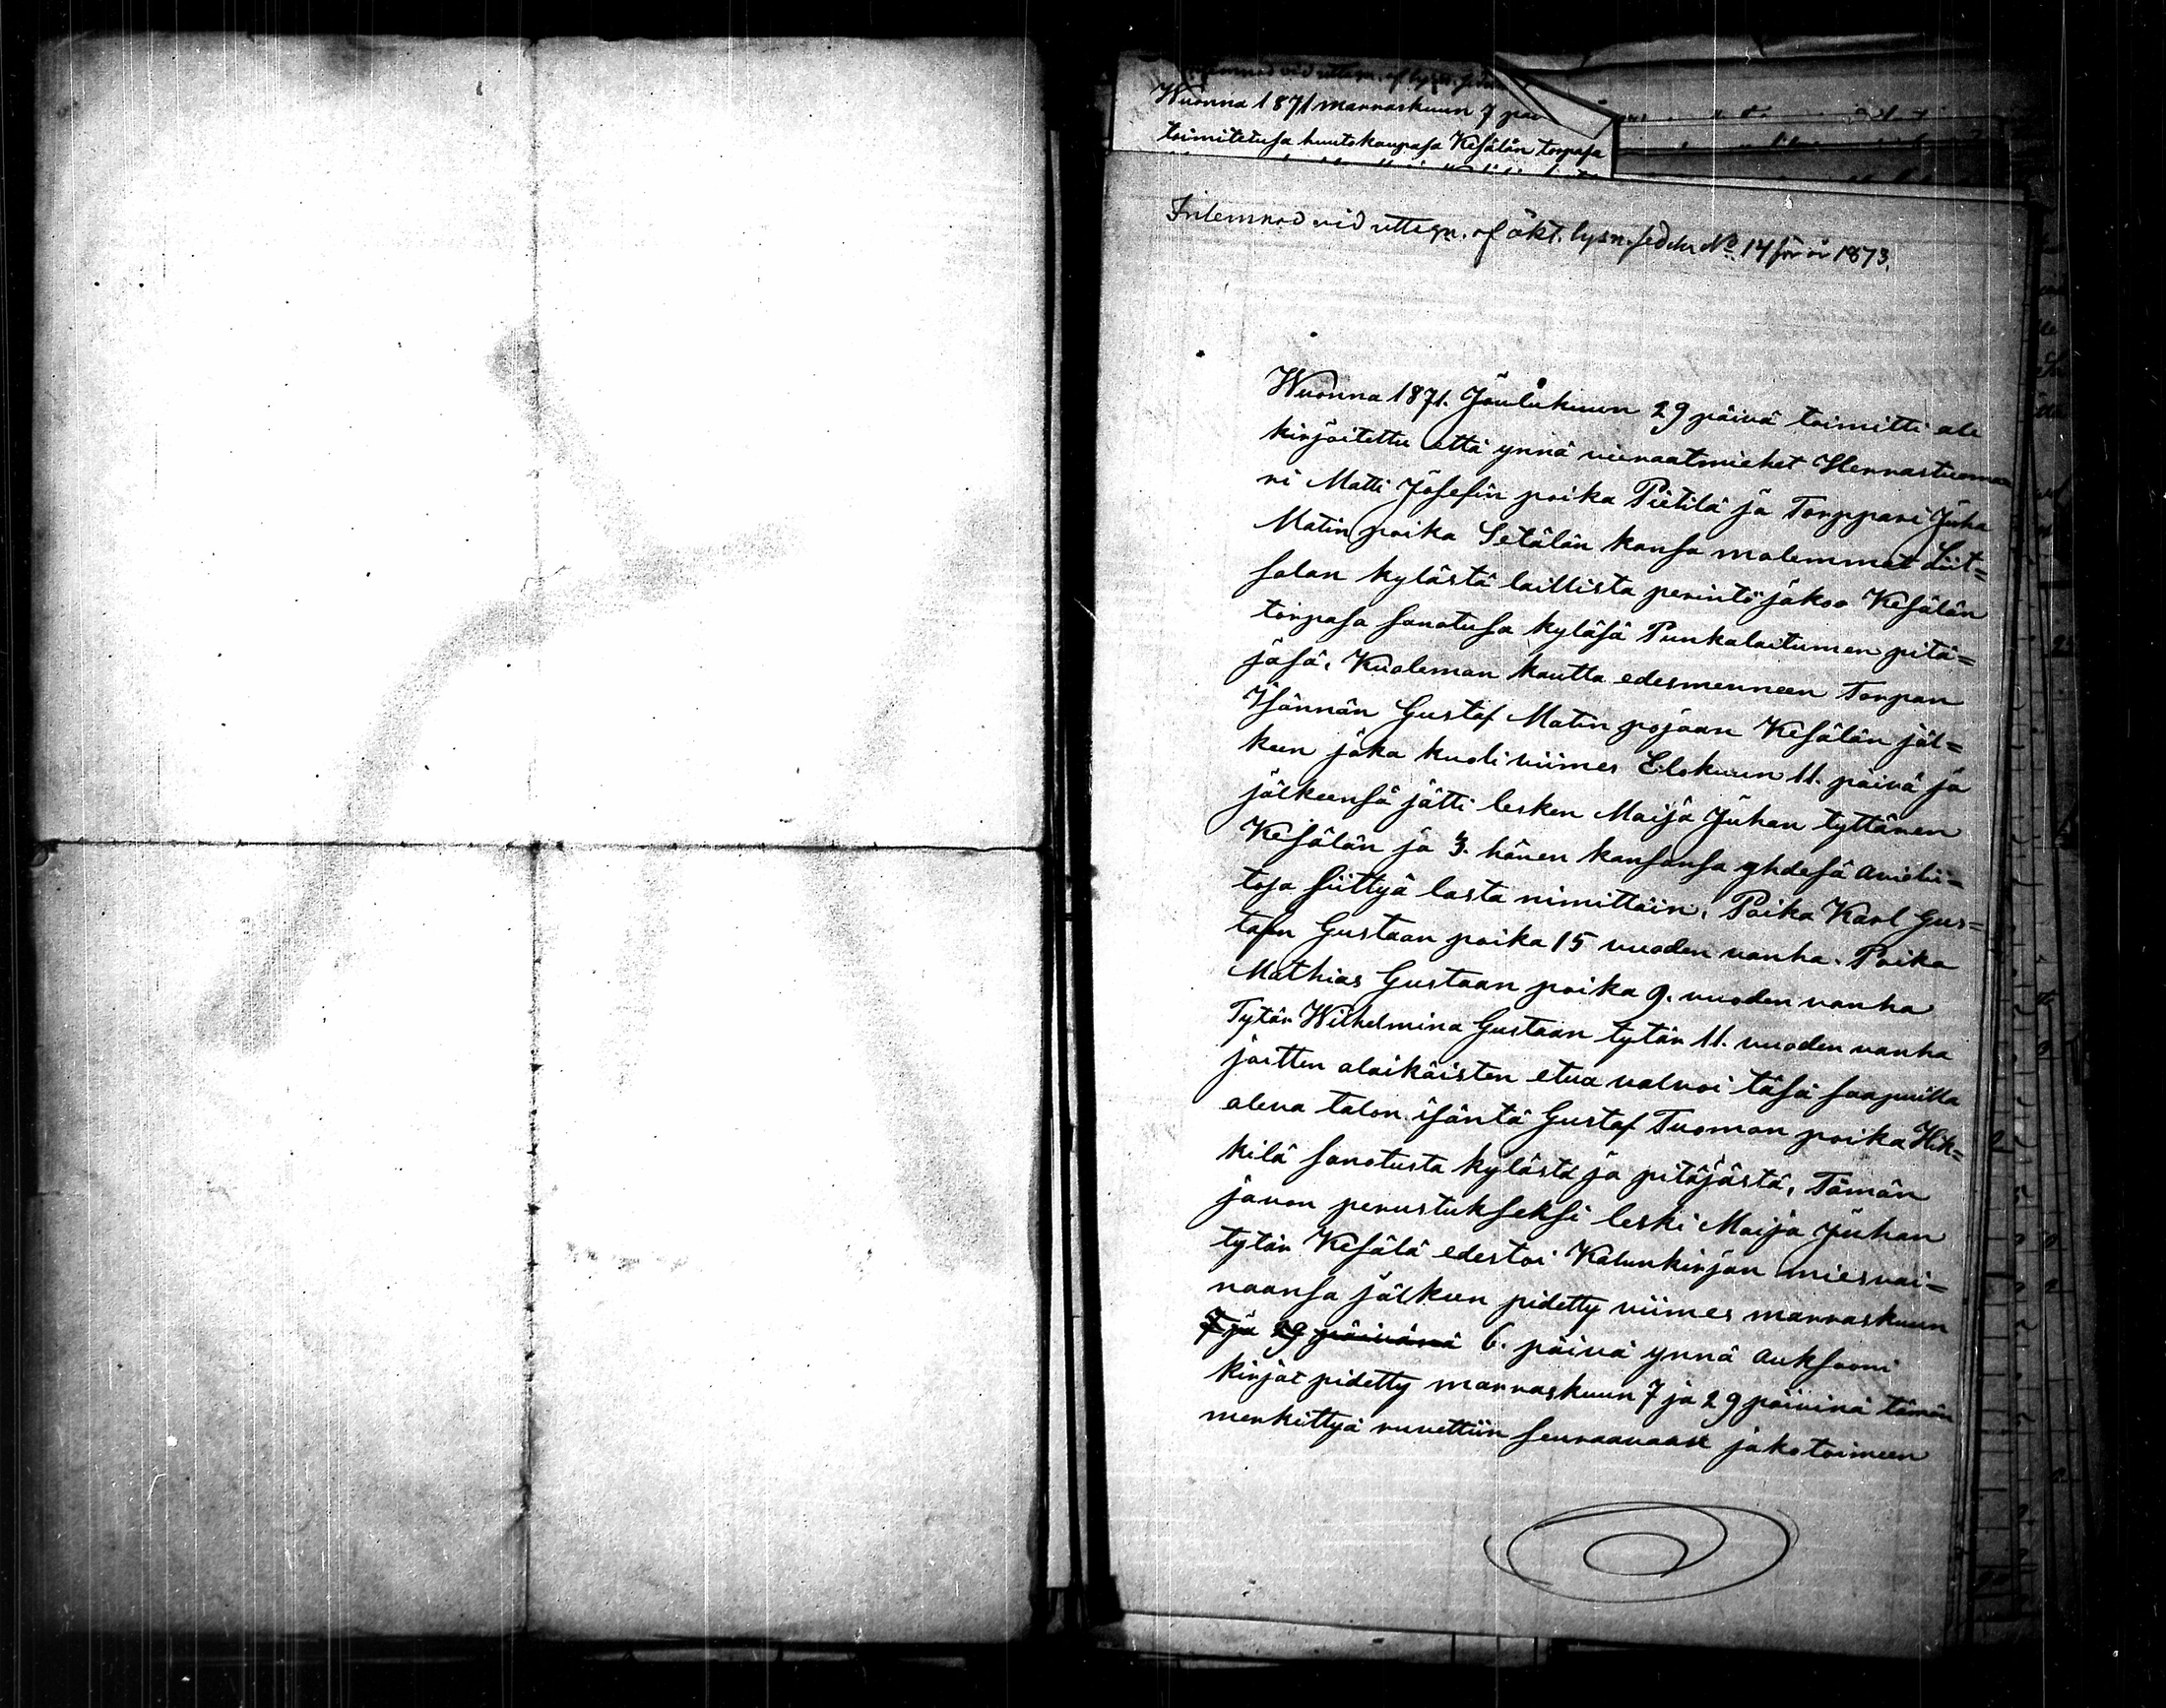 Wuonna 1871 marraskuun 7 päi
toimitetusa huutokaupasa Kesälän torpasa
Inlemnad vid uttagn. af äkt. lysn. sedels No 14 för år 1873.
Wuonna 1871. Joulukuun 29 päivä toimitti ale
kirjoitettu että ynnä vieraatmiehet Herrastuoma
ri Matti Josefin poika Pietilä ja Torppari Juha
Matin poika Setälän kansa molemmat Liit=
solan kylästä laillista perintö jakoo Kesälän
torpasa sanotusa kyläsä Punkalaitumen pitä=
jäsä, Kuoleman kautta edesmenneen Torpan
Isännän Gustaf Matin pojaan Kesälän jäl=
keen joka kuoli viimes Elokuun 11. päivä ja
jälkeensä jätti lesken Maija Juhan tyttären
Kesälän ja 3. hänen kansansa yhdesä aviolii=
tosa siittyä lasta nimittäin, Poika Karl Gus=
tafen Gustaan poika 15 vuoden vanha. Poika
Mathias Gustaan poika 9. vuoden vanha
Tytär Wilhelmina Gustaan tytär 11. vuoden vanha
joitten alaikäisten etua valvoi täsä saapuilla
oleva talon isäntä Gustaf Tuoman poika Hik=
kilä sanotusta kylästä ja pitäjästä, Tämän
javon perustukseksi leski Maija Juhan
tytär Kesälä edestoi Kalunkirjan miesvai=
naansa jälkeen pidetty viimes marraskuun
7 ja 29 päivänä 6. päivä ynnä auksooni
kirjat pidetty marraskuun 7 ja 29 päivinä tämän
merkittyä ruvettiin seuraavaan jakotoimeen